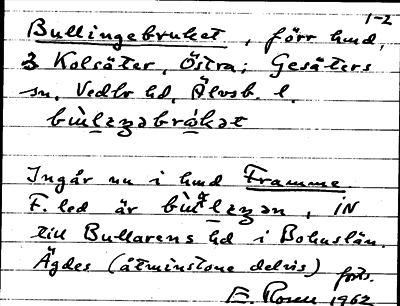 1-2
Bullingebruket, förr hmd,
3 Kolsäter, Östra; Gesäters
sn, Vedbo hd, Älvsb. l.
Ingår nu i hmd Framme.
F. led är , IN
till Bullarens hd i Bohuslän.
Ägdes (åtminstone delvis) forts.
E. Rosell 1962